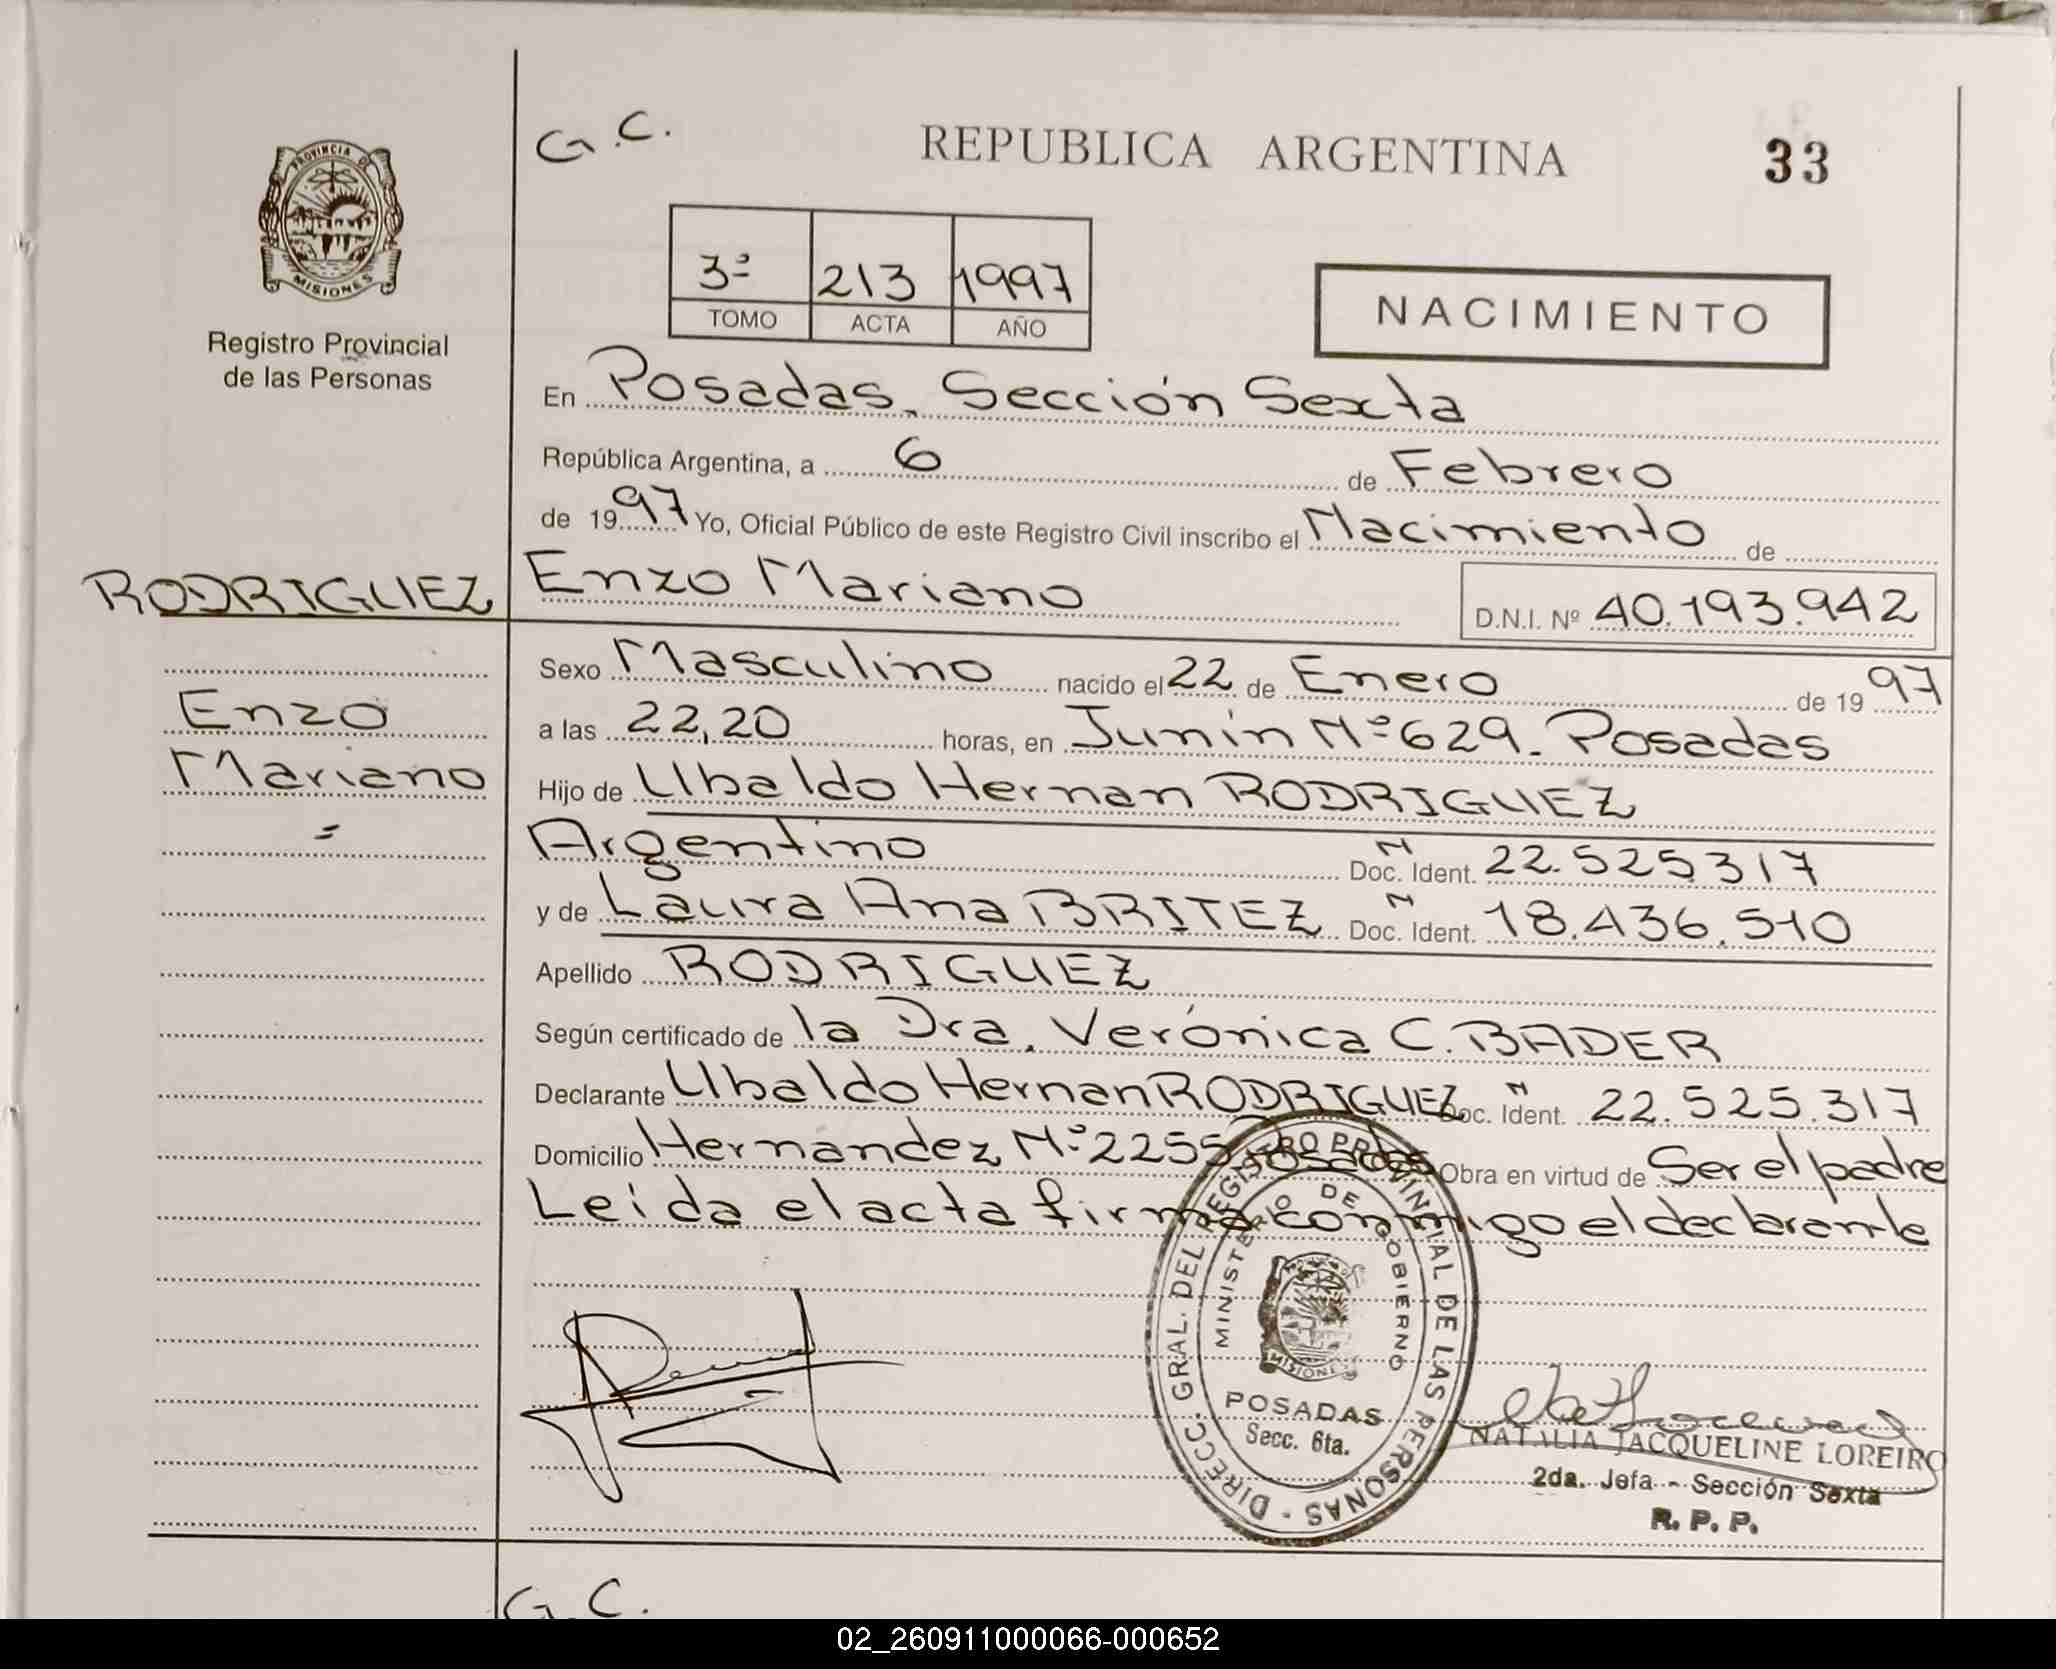 G.C.
REPUBLICA ARGENTINA
33
PROVINCIA DE
MISIONES
Registro Provincial
de las Personas
3º 213 1997
TOMO ACTA AÑO
NACIMIENTO
En Posadas. Sección Sexta
República Argentina, a 6 de Febrero
de 1997 Yo, Oficial Público de este Registro Civil inscribo el Nacimiento de
RODRIGUEZ Enzo Mariano D.N.I. Nº 40.193.942
Sexo Masculino nacido el 22 de Enero de 1997
Enzo
a las 22,20 horas, en Junin Nº 629. Posadas
Mariano
Hijo de Ubaldo Hernan RODRIGUEZ
=
Argentino Doc. N Ident. 22.525.317
y de Laura Ana BRITEZ Doc. N Ident. 18.436.510
Apellido RODRIGUEZ
Según certificado de la Dra. Verónica C. BADER
Declarante Ubaldo Hernan RODRIGUEZ Doc. N Ident. 22.525.317
Domicilio Hernandez Nº 2255 Posadas Obra en virtud de Ser el padre
Leida el acta firma conmigo el declarante
DIRECC. GRAL. DEL REGISTRO PROVINCIAL DE LAS PERSONAS
MINISTERIO DE GOBIERNO
MISIONES
POSADAS
Secc. 6ta.
NATALIA JACQUELINE LOREIRO
2da. Jefa - Sección Sexta
R. P. P.
G.C.
02_260911000066-000652